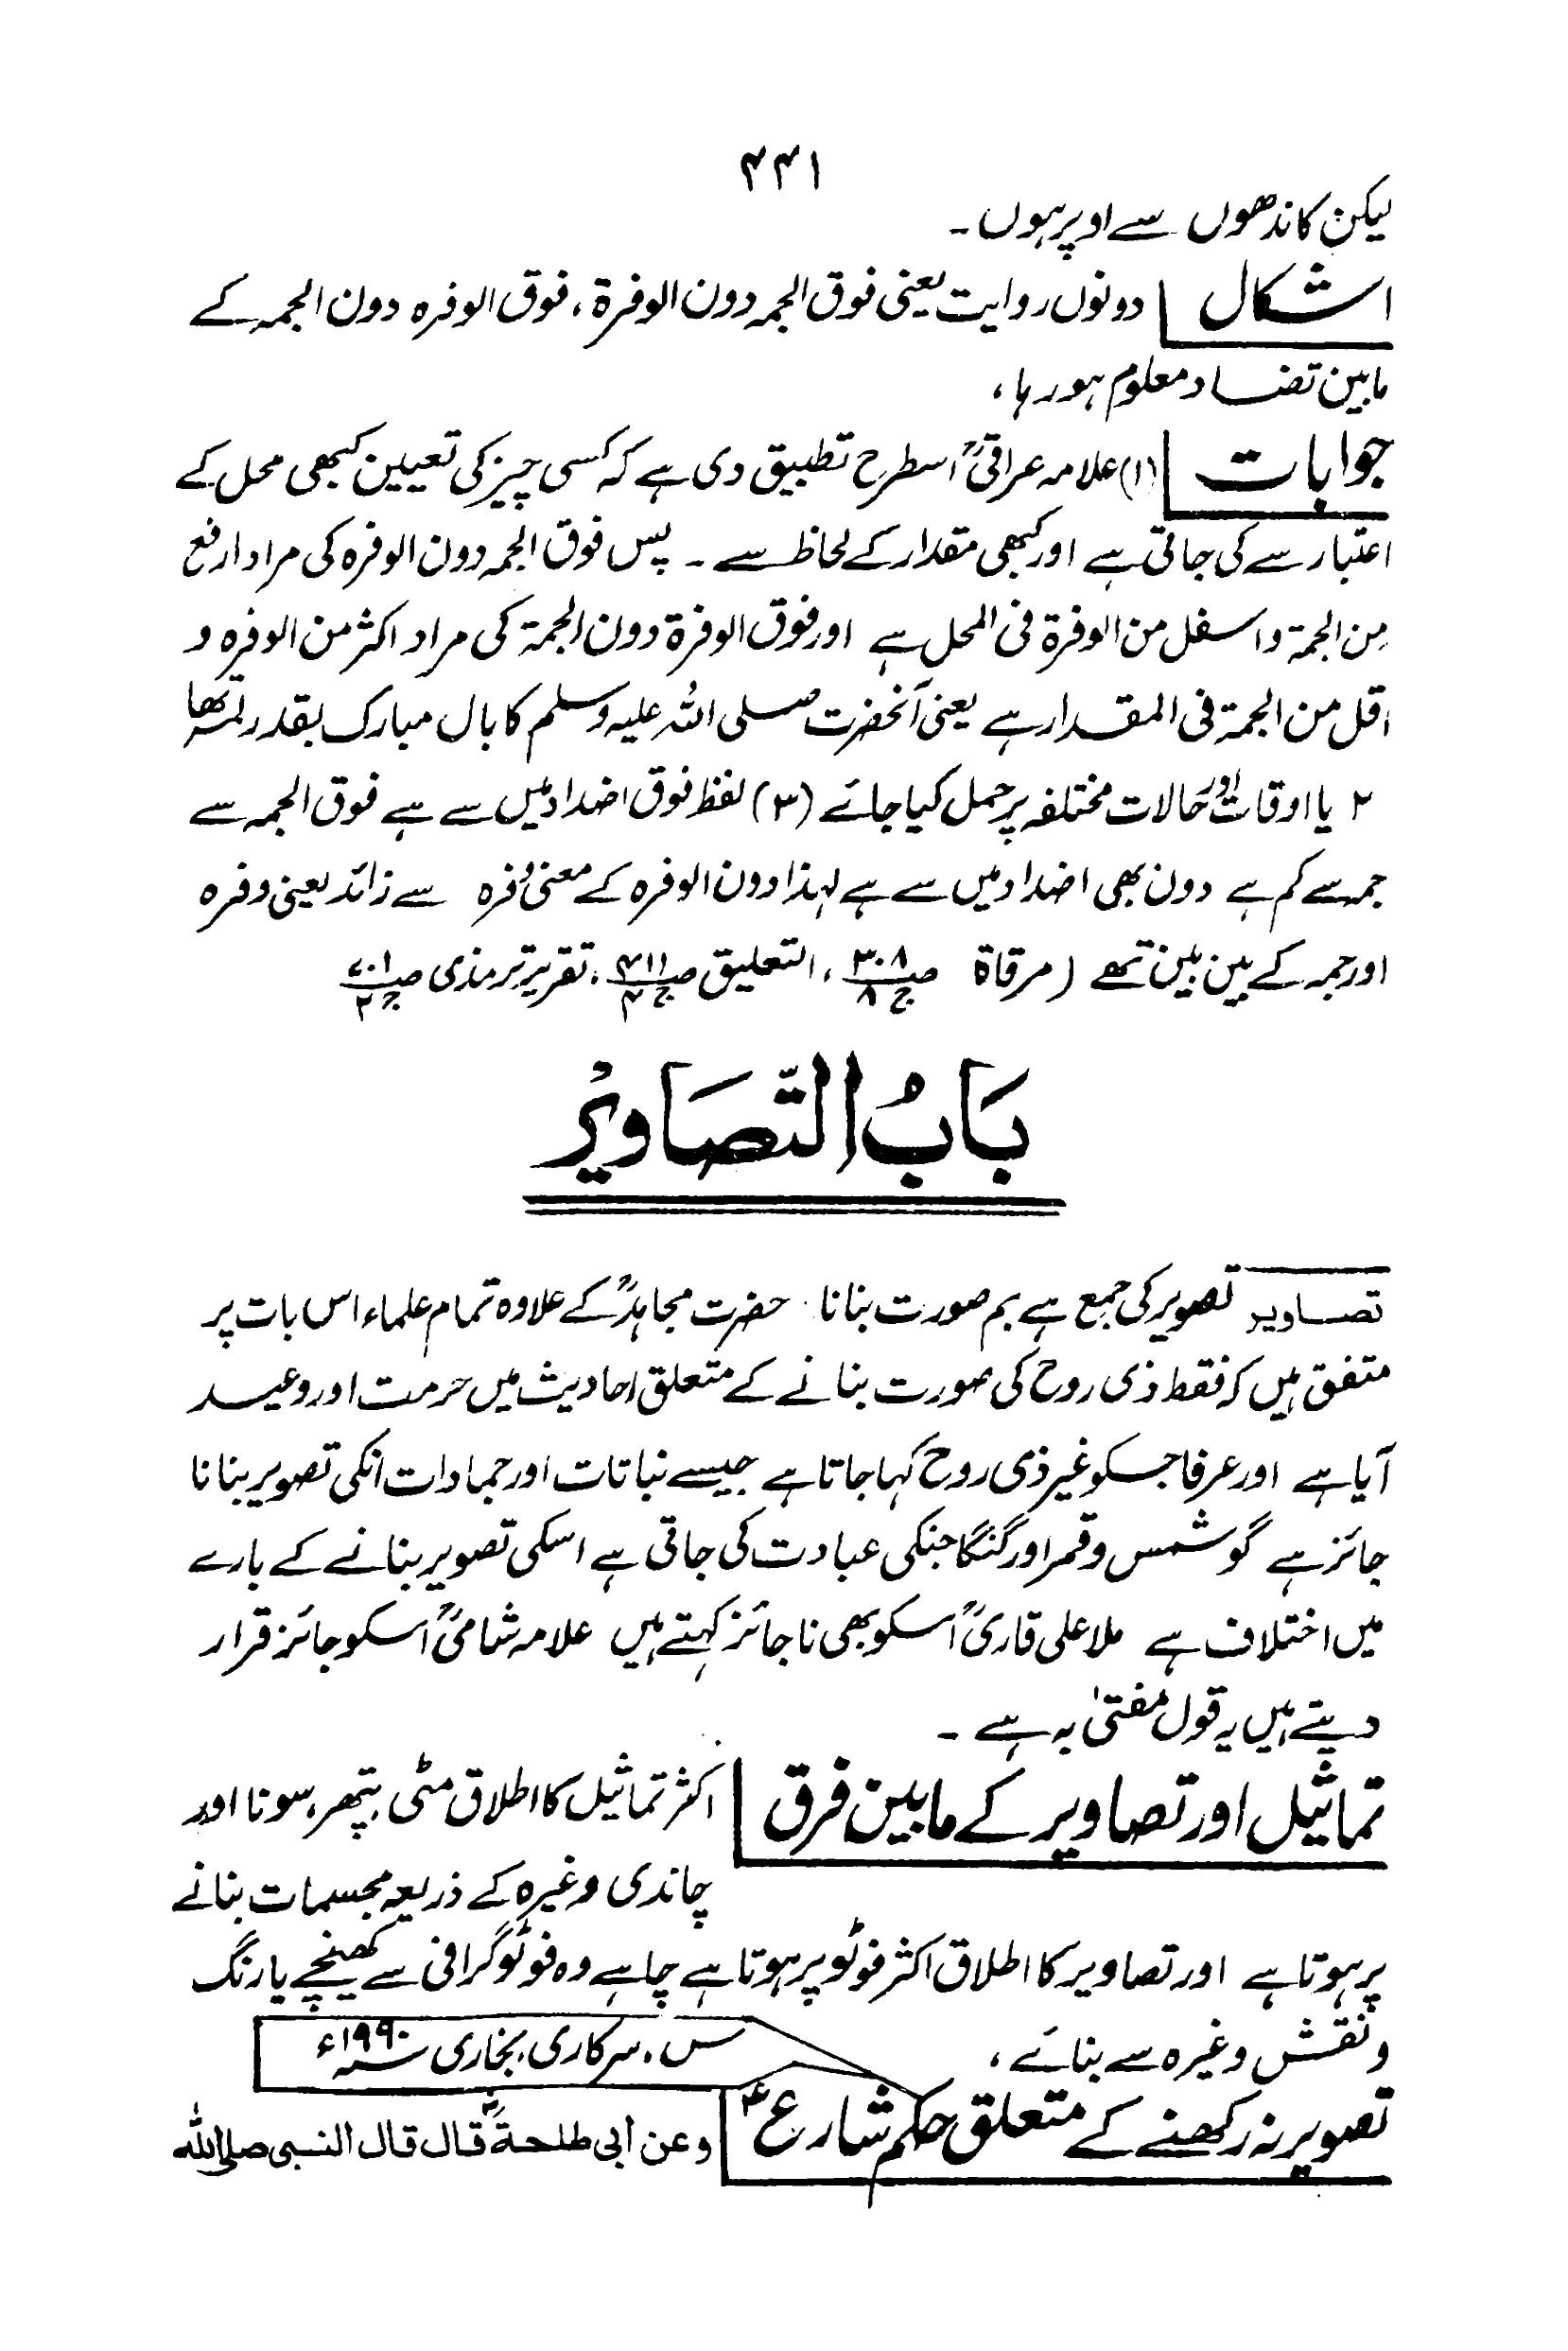 ۴۴۱
لیکن کاندھوں سے اوپر ہوں۔
اشکال دونوں روایت یعنی فوق الجمہ دون الوفرۃ، فوق الوفرہ دون الجمہ کے
مابین تضاد معلوم ہو رہا،
جوابات (۱) علامہ عراقیؒ اسطرح تطبیق دی ہے کہ کسی چیز کی تعیین کبھی محل کے
اعتبار سے کی جاتی ہے اور کبھی مقدار کے لحاظ سے ۔ پس فوق الجمہ دون الوفرہ کی مراد ارفع
مِن الجمۃ واسفل من الوفرۃ فی المحل ہے اور فوق الوفرۃ دون الجمۃ کی مراد اکثر من الوفرہ و
اقل من الجمۃ فی المقدار ہے یعنی آنحضرت صلی اللہ علیہ وسلم کا بال مبارک بقدر لمہ تھا
۲ یا اوقات اور حالات مختلفہ پر حمل کیا جائے (۳) لفظ فوق اضداد میں سے ہے فوق الجمہ سے
جمہ سے کم ہے دون بھی اضداد میں سے ہے لہذا دون الوفرہ کے معنی وفرہ سے زائد یعنی وفرہ
اور جمہ کے بین بین تھے (مرقاۃ ص۳۰۸ ج۸، التعلیق ص۴۱۱ ج۴، تقریر ترمذی ص۷۰۱ ج۲
بَابُ التَّصَاوِیْرُ
تصاویر تصویر کی جمع ہے بم صورت بنانا حضرت مجاہدؒ کے علاوہ تمام علماء اس بات پر
متفق ہیں کہ فقط ذی روح کی صورت بنانے کے متعلق احادیث میں حرمت اور وعید
آیا ہے اور عرفا جسکو غیر ذی روح کہا جاتا ہے جیسے نباتات اور جمادات انکی تصویر بنانا
جائز ہے گو شمس وقمر اور گنگا جنکی عبادت کی جاتی ہے اسکی تصویر بنانے کے بارے
میں اختلاف ہے ملا علی قاریؒ اسکو بھی ناجائز کہتے ہیں علامہ شامیؒ اسکو جائز قرار
دیتے ہیں یہ قول مفتیٰ بہ ہے ۔
تماثیل اور تصاویر کے مابین فرق اکثر تماثیل کا اطلاق مٹی، پتھر، سونا اور
چاندی وغیرہ کے ذریعہ مجسمات بنانے
پر ہوتا ہے اور تصاویر کا اطلاق اکثر فوٹو پر ہوتا ہے چاہے وہ فوٹوگرافی سے کھینچے یا رنگ
ونقش وغیرہ سے بنائے، س، سرکاری، بخاری سنہ ۱۹۹۰ء
تصویر نہ رکھنے کے متعلق حکم شارعؑ وعن أبی طلحۃؓ قال قال النبی صلی اللہ